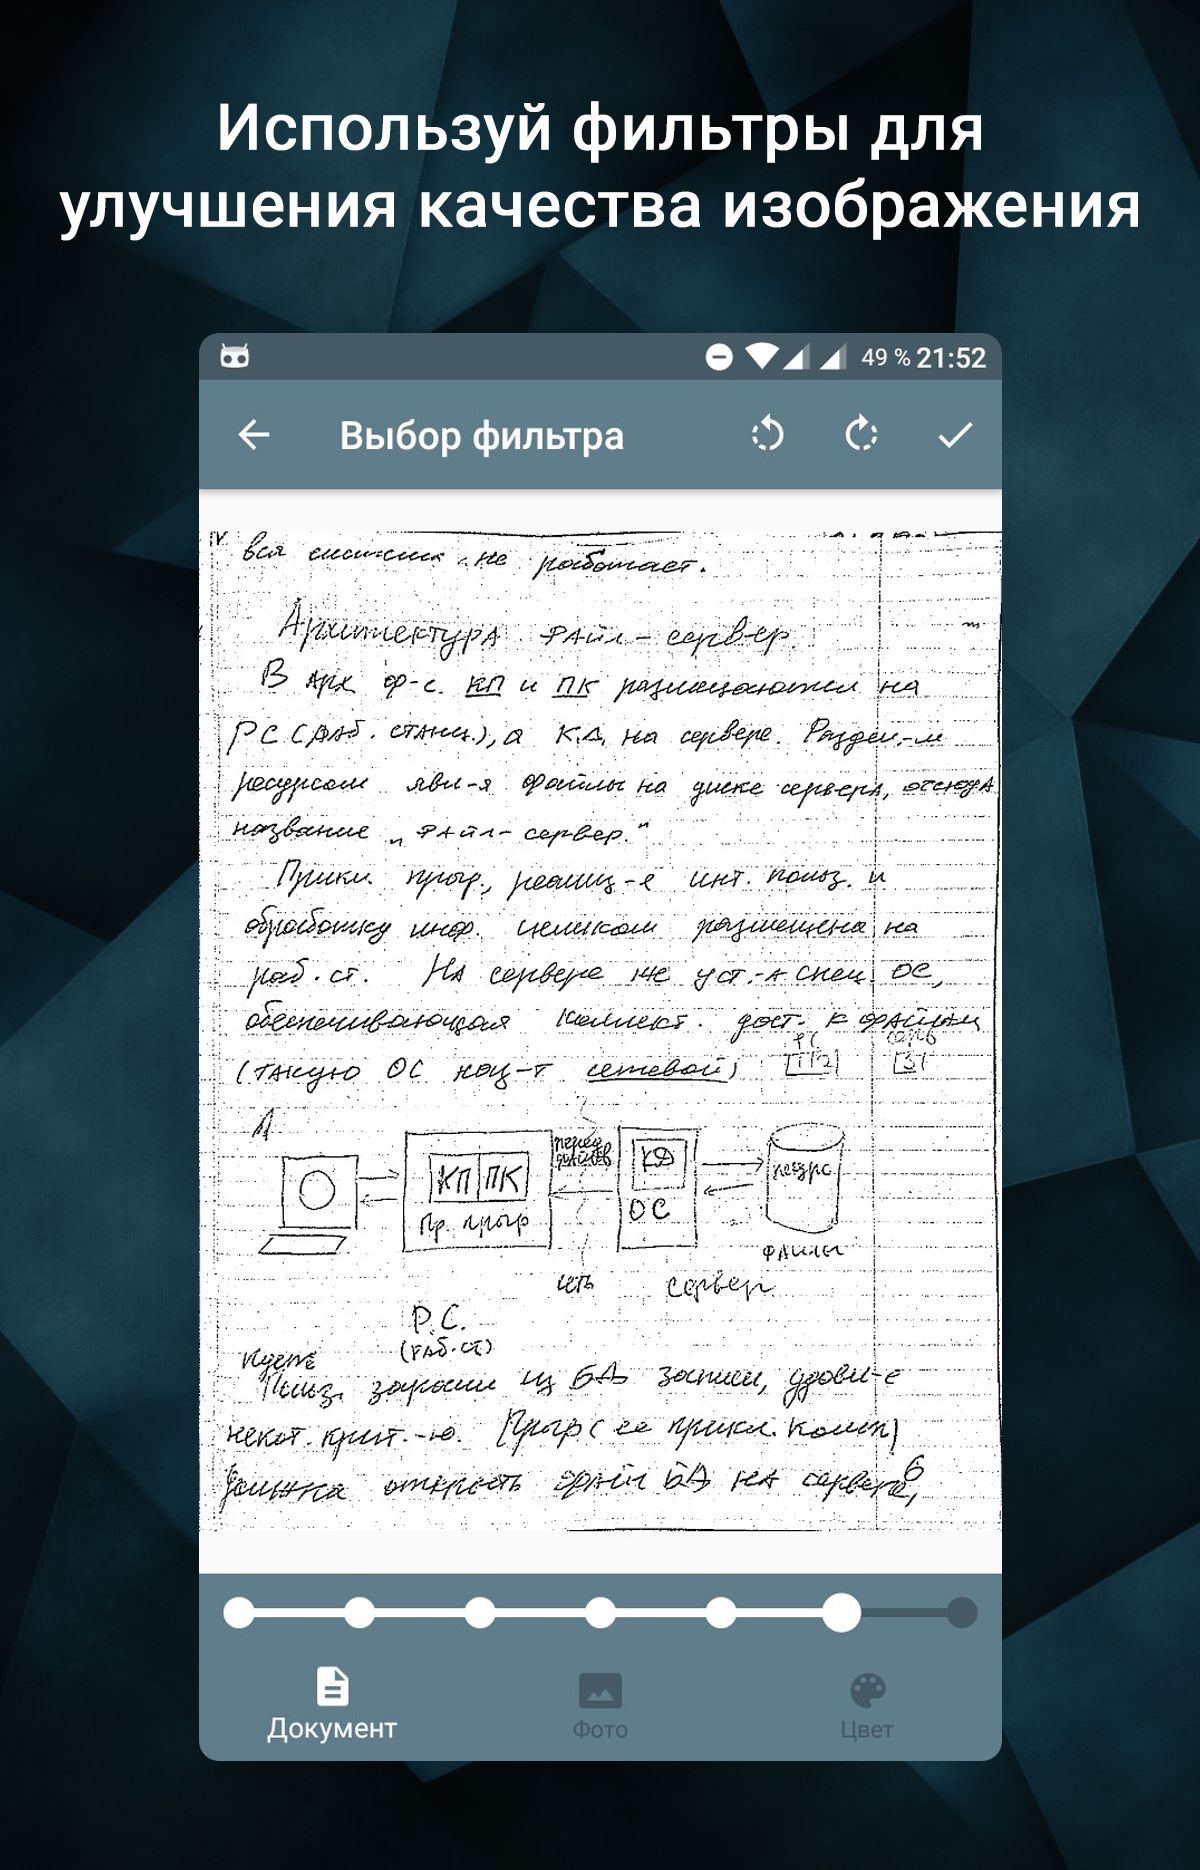 Используй фильтры для
улучшения качества изображения
49 % 21:52
Выбор фильтра
вся система не работает.
Архитектура файл-сервер.
В арх ф-с. КП и ПК размещаются на
РС (раб. станц.), а К.Д. на сервере. Раздел.-м
ресурсом явл-я файлы на диске сервера, отсюда
название „файл-сервер."
Прикл. прогр., реализ-я инт. польз. и
обработку инф. целиком размещена на
раб. ст. На сервере же уст.-а спец. ОС,
обеспечивающая коллект. дост. к файлам
(такую ОС наз-т сетевой)
РС серв
1 2 3
1
КП ПК
Пр. прогр
перед файлов
КД
ОС
ресурс
файлы
сеть сервер
Р.С.
(раб.ст)
Пусть
Польз. запросил из БД записи, удовл-е
некот. крит.-ю. Прогр (ее прикл. комп)
должна открыть файл БД на сервере,
6
Документ
Фото
Цвет